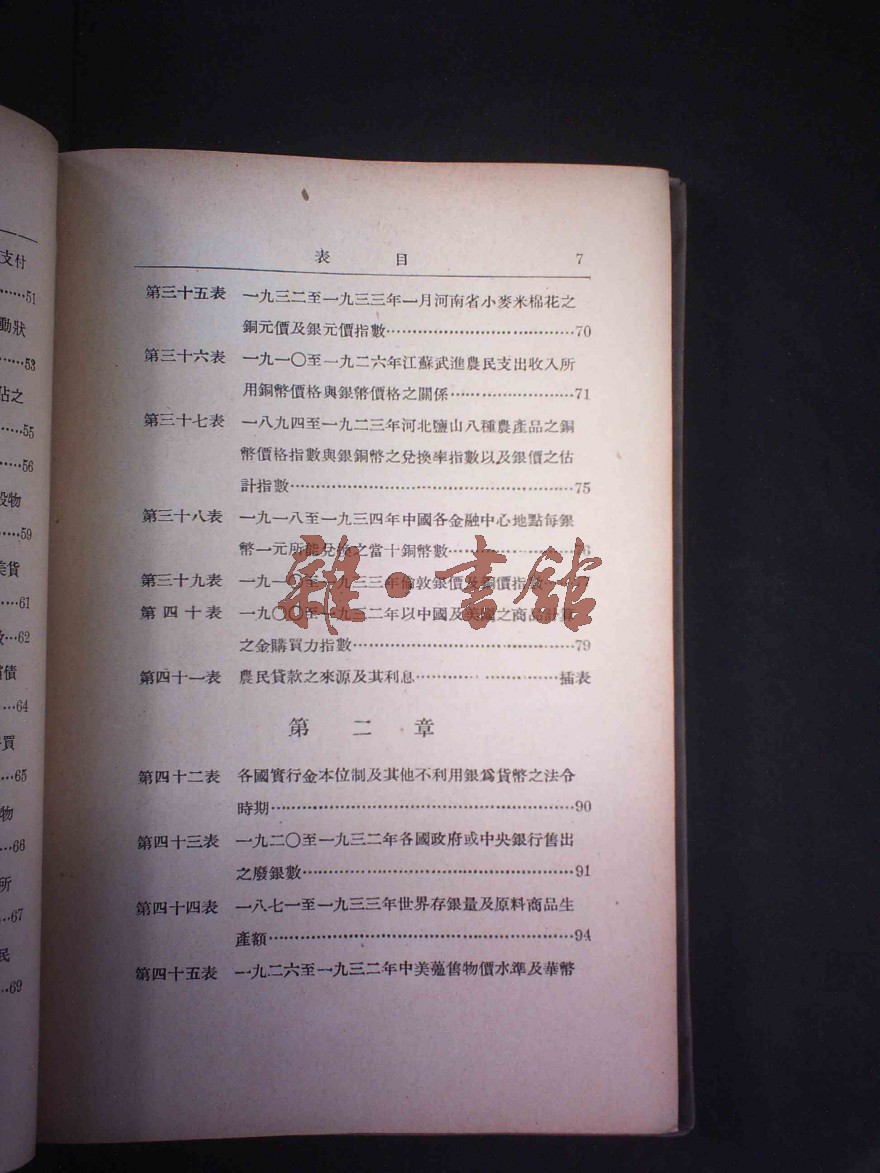 支付
51
動狀
53
佔之
55
56
穀物
59
美貨
61
62
償債
64
買
65
物
66
所
67
民
69
表 目 7
第三十五表 一九三二至一九三三年一月河南省小麥米棉花之
銅元價及銀元價指數…………………………70
第三十六表 一九一〇至一九二六年江蘇武進農民支出收入所
用銅幣價格與銀幣價格之關係………………71
第三十七表 一八九四至一九二三年河北鹽山八種農產品之銅
幣價格指數與銀銅幣之兌換率指數以及銀價之估
計指數…………………………………………75
第三十八表 一九一八至一九三四年中國各金融中心地點每銀
幣一元所能兌換之當十銅幣數………………6
第三十九表 一九一〇至一九三三年倫敦銀價及銅價指數……7
第四十表 一九〇〇至一九三二年以中國及美國之商品計算
之金購買力指數………………………………79
第四十一表 農民貸款之來源及其利息……………………插表
第二章
第四十二表 各國實行金本位制及其他不利用銀爲貨幣之法令
時期……………………………………………90
第四十三表 一九二〇至一九三二年各國政府或中央銀行售出
之廢銀數………………………………………91
第四十四表 一八七一至一九三三年世界存銀量及原料商品生
產額……………………………………………94
第四十五表 一九二六至一九三二年中美躉售物價水準及華幣
雜·書館